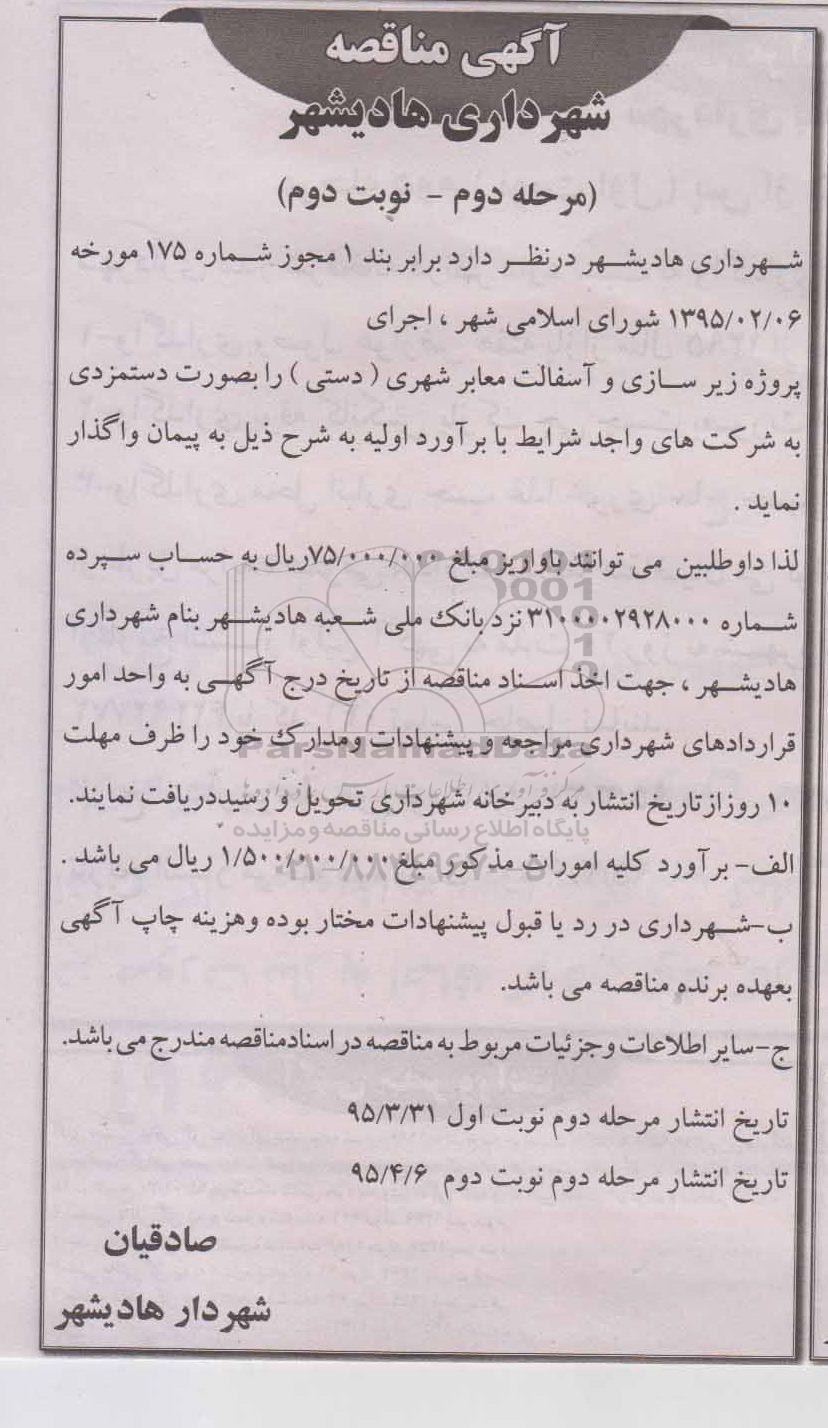 آگهی مناقصه
شهرداری هادیشهر
(مرحله دوم - نوبت دوم)
شهرداری هادیشهر درنظر دارد برابر بند ۱ مجوز شماره ۱۷۵ مورخه
۱۳۹۵/۰۲/۰۶ شورای اسلامی شهر ، اجرای
پروژه زیر سازی و آسفالت معابر شهری ( دستی ) را بصورت دستمزدی
به شرکت های واجد شرایط با برآورد اولیه به شرح ذیل به پیمان واگذار
نماید .
لذا داوطلبین می توانند باواریز مبلغ ۷۵/۰۰۰/۰۰۰ریال به حساب سپرده
شماره ۳۱۰۰۰۰۲۹۲۸۰۰۰ نزد بانک ملی شعبه هادیشهر بنام شهرداری
هادیشهر ، جهت اخذ اسناد مناقصه از تاریخ درج آگهی به واحد امور
قراردادهای شهرداری مراجعه و پیشنهادات ومدارک خود را ظرف مهلت
۱۰ روزازتاریخ انتشار به دبیرخانه شهرداری تحویل و رسیددریافت نمایند.
الف- برآورد کلیه امورات مذکور مبلغ ۱/۵۰۰/۰۰۰/۰۰۰ ریال می باشد .
ب-شهرداری در رد یا قبول پیشنهادات مختار بوده وهزینه چاپ آگهی
بعهده برنده مناقصه می باشد.
ج-سایر اطلاعات وجزئیات مربوط به مناقصه در اسنادمناقصه مندرج می باشد.
تاریخ انتشار مرحله دوم نوبت اول ۹۵/۳/۳۱
تاریخ انتشار مرحله دوم نوبت دوم ۹۵/۴/۶
صادقیان
شهردار هادیشهر
ParsNamadData
پایگاه اطلاع رسانی مناقصه و مزایده